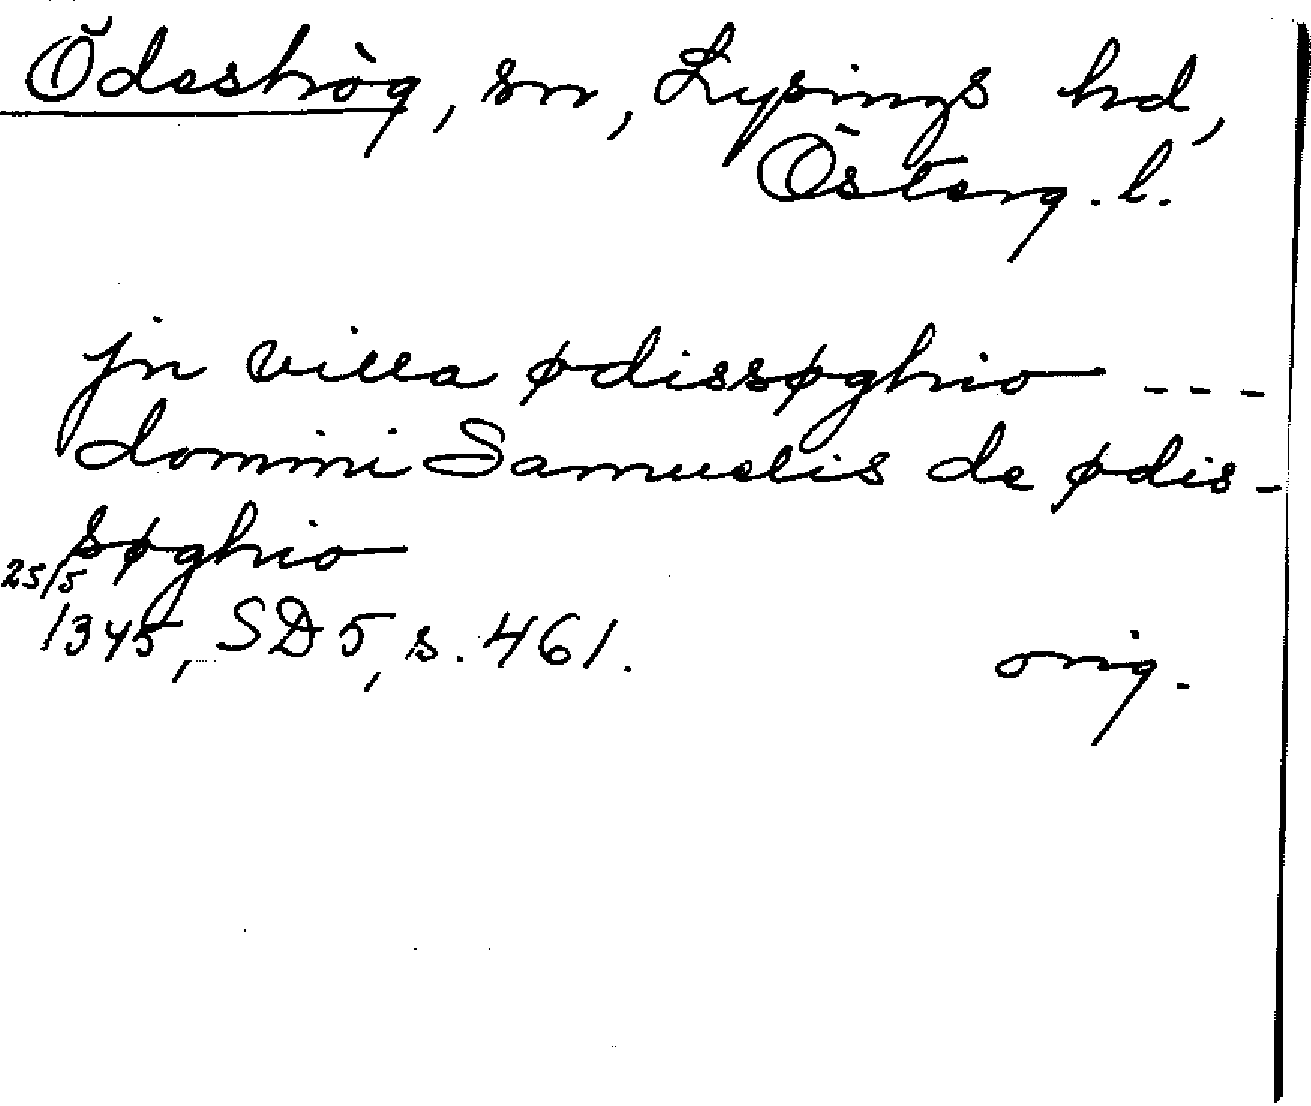 Ödeshög, sn, Lysings hd,
Österg. l.
jn villa ødissøghio ---
domini Samuelis de ødis-
søghio
25/5
1345, SD 5, s. 461. orig.